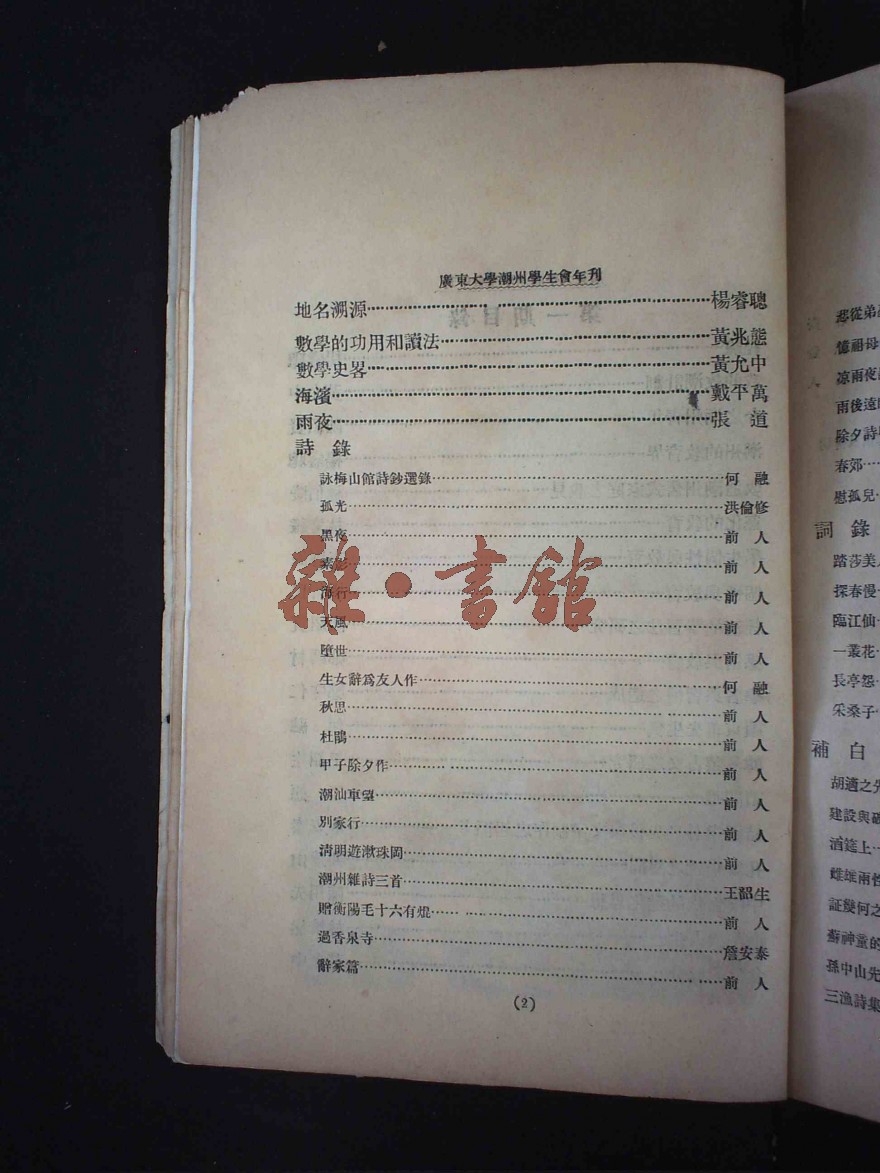 廣東大學潮州學生會年刊
地名溯源……楊睿聰
數學的功用和讀法……黃兆態
數學史畧……黃允中
海濱……戴平萬
雨夜……張 道
詩 錄
詠梅山館詩鈔選錄……何 融
孤光……洪倫修
黑夜……前 人
素影……前 人
海行……前 人
天風……前 人
墮世……前 人
生女辭爲友人作……何 融
秋思……前 人
杜鵑……前 人
甲子除夕作……前 人
潮汕車望……前 人
別家行……前 人
淸明遊漱珠岡……前 人
潮州雜詩三首……王韶生
贈衡陽毛十六有焜……前 人
過香泉寺……詹安泰
辭家篇……前 人
(2)
雜·書館
悲從弟
憶祖母
凉雨夜
雨後遠
除夕詩
春郊…
慰孤兒…
詞 錄
踏莎美
探春慢…
臨江仙…
一叢花…
長亭怨…
采桑子…
補 白
胡適之先
建設與破
酒筵上…
雌雄兩性
証幾何之
蘇神童的
孫中山先
三漁詩集